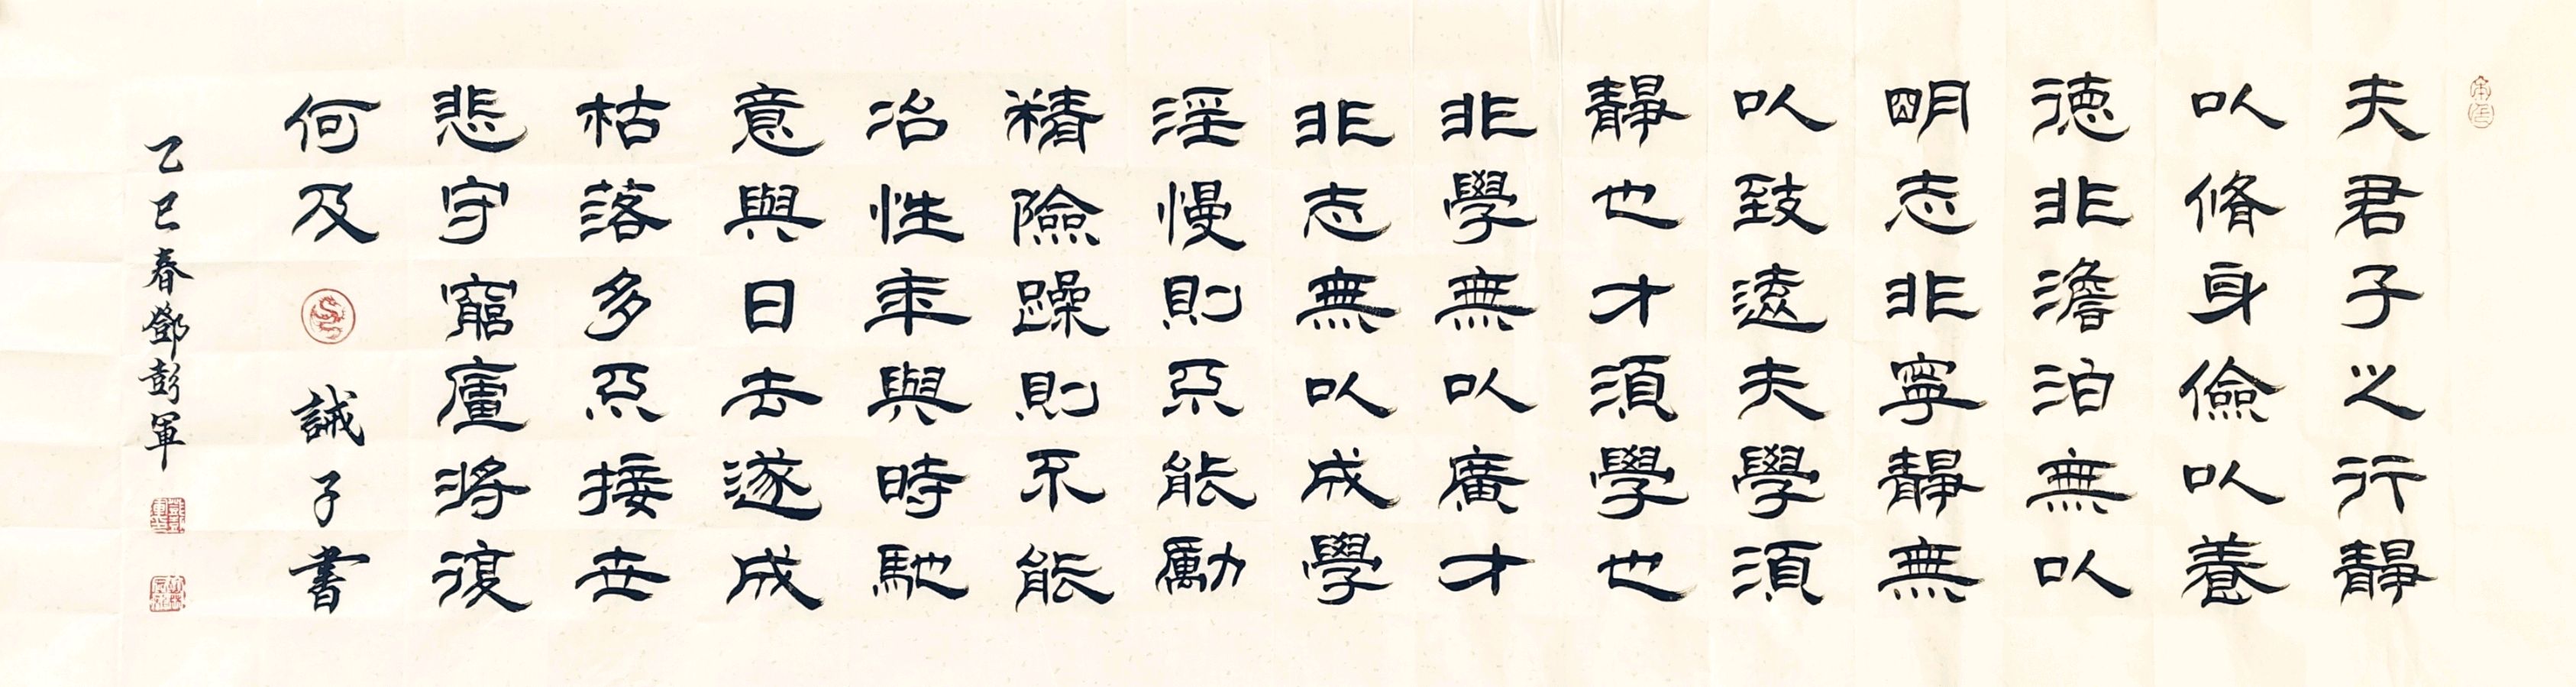 夫君子之行靜
以脩身儉以養
德非澹泊無以
明志非寧靜無
以致遠夫學須
靜也才須學也
非學無以廣才
非志無以成學
淫慢則不能勵
精險躁則不能
冶性年與時馳
意與日去遂成
枯落多不接世
悲守窮廬將復
何及
誡子書
乙巳春鄧彭軍